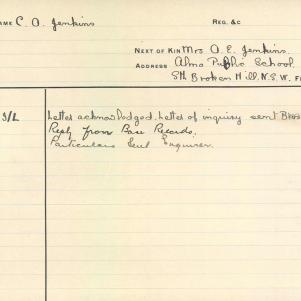 NAME C. O. Jenkins REG. &C
NEXT OF KIN Mrs O. E. Jenkins.
ADDRESS Alma Public School,
Sth Broken Hill, N.S.W.
S/L Letter acknowledged. Letter of inquiry sent
Reply from Base Records.
Particulars sent Enquirer.